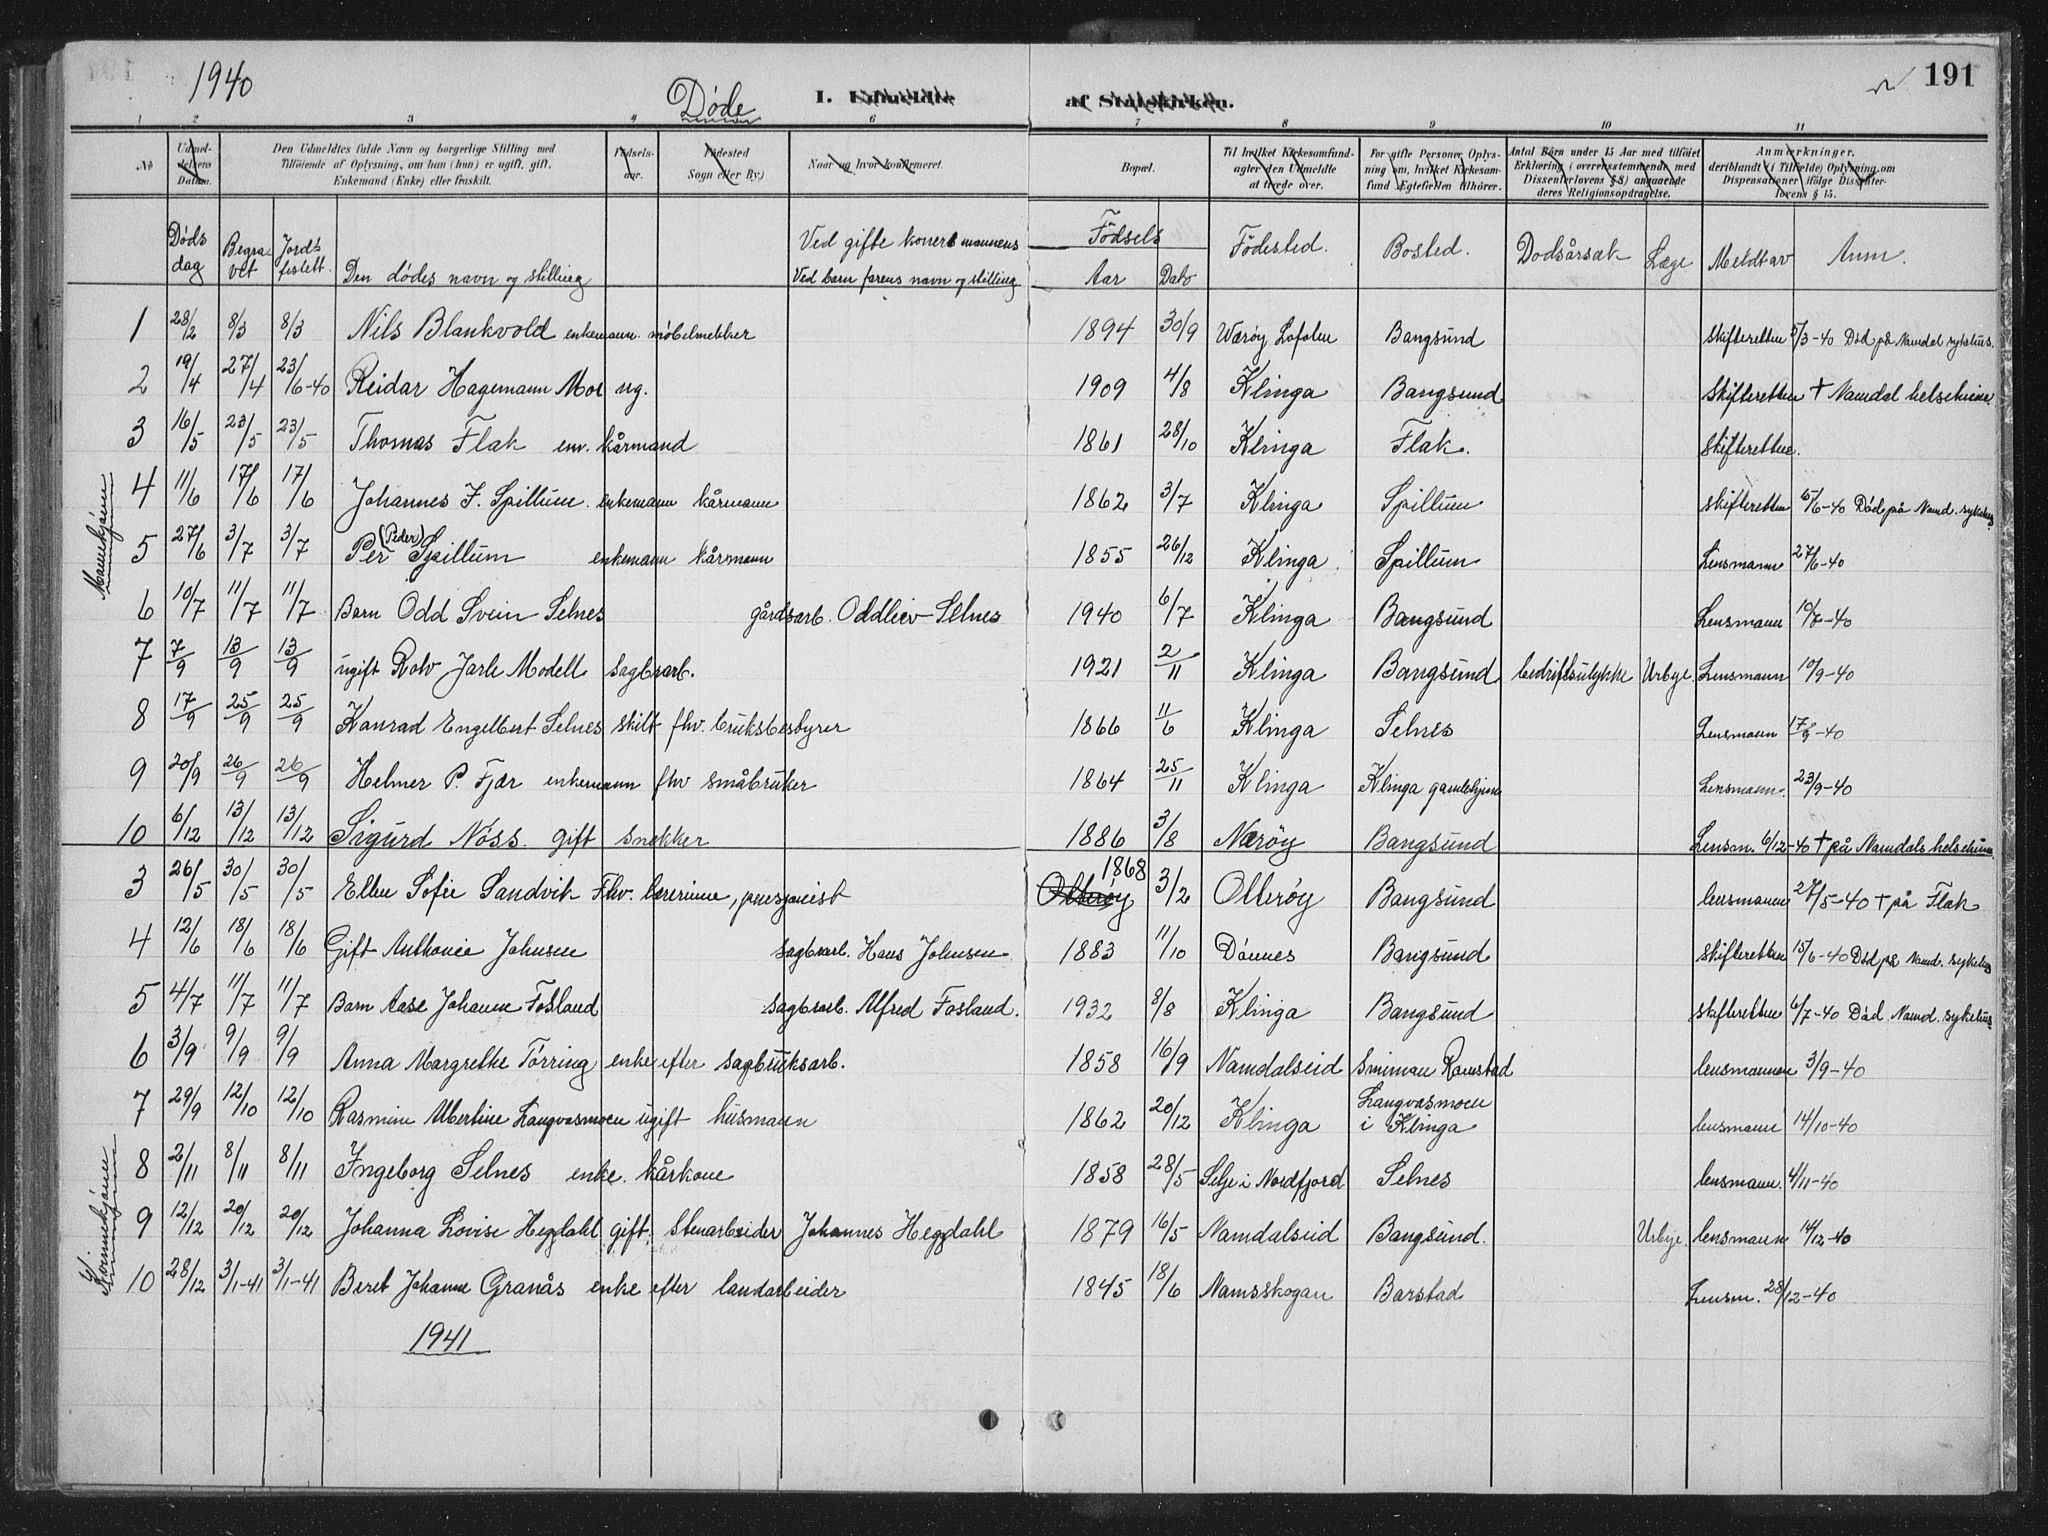 1940 Døde I. Udmeldte af Statskirken. 191
1 2 3 4 6 7 8 9 10 11
No Udmeldelsens Datum. Den Udmeldtes fulde Navn og borgerlige Stilling med Tilføiende af Oplysning, om han (hun) er ugift, gift. Enkemand (Enke) eller fraskilt. Fødselsaar. Fødested Sogn eller By.) Naar og hvor konfirmeret. Bopæl. Til hvilket Kirkesamfund agter den Udmeldte at træde over. For gifte Personer Oplysning om, hvilket Kirkesamfund Ægtefællen tilhører. Antal Børn under 15 Aar med tilføiet Erklæring (overensstemmende med Dissenterlovens § 8) angaaende deres Religionsopdragelse. Anmærkninger, deriblandt (i Tilfælde) Oplysning om Dispensationer ifølge Dissenterlovens § 15.
Døds dag Begravet Jordfestett. Den dødes navn og stilling Ved gifte koner mannens Ved barn farens navn og stilling Fødsels Aar Dato Fødested. Bosted. Dødsårsak Læge Meldt av Anm.
Mannkjønn
1 28/2 8/3 8/3 Nils Blankvold enkemann. møbelmekker 1894 30/9 Værøy Lofoten Bangsund Skifteretten 5/3-40 Død på Namdal sykehus.
2 19/4 27/4 23/6-40 Reidar Hagemann Moe ug. 1909 4/8 Klinga Bangsund Skifteretten † Namdal helseheim.
3 16/5 23/5 23/5 Thomas Flak em. kårmand 1861 28/10 Klinga Flak. Skifteretten.
4 11/6 17/6 17/6 Johannes F. Spillum enkemann kårmann 1862 3/7 Klinga Spillum Skifteretten 15/6-40 Død på Namd. sykehus
5 27/6 3/7 3/7 Per (Peder) Spillum enkemann kårmann 1855 26/12 Klinga Spillum Lensmann 27/6-40
6 10/7 11/7 11/7 Barn Odd Svein Selnes gårdsarb. Oddleiv Selnes 1940 6/7 Klinga Bangsund Lensmann 10/7-40
7 7/9 13/9 13/9 ugift Rolv Jarle Modell sagbrarb. 1921 2/11 Klinga Bangsund bedriftsulykke Urbye Lensmann 10/9-40
8 17/9 25/9 25/9 Konrad Engelbert Selnes skilt fhv. bruksbestyrer 1866 11/6 Klinga Selnes Lensmann 17/9-40
9 20/9 26/9 26/9 Helmer P. Fjær enkemann fhv småbruker 1864 25/11 Klinga Klinga gamlehjem Lensmann. 23/9-40
10 6/12 13/12 13/12 Sigurd Nöss. gift snekker 1886 3/8 Nærøy Bangsund Lensm. 6/12-40 † på Namdals helseheim
Kvinnekjønn
3 26/5 30/5 30/5 Ellen Sofie Sandvik Fhv. lærerinne, pensjonist Otterøy 1868 3/2 Otterøy Bangsund lensmann 27/5-40 † på Flak
4 12/6 18/6 18/6 Gift Anthonie Johnsen sagbrarb. Hans Johnsen 1883 11/10 Dönnes Bangsund Skifteretten 15/6-40 Død på Namd. sykehus
5 4/7 11/7 11/7 Barn Aase Johanne Fosland sagbrarb. Alfred Fosland. 1932 8/8 Klinga Bangsund Skifteretten 6/7-40 Död Namd. sykehus
6 3/9 9/9 9/9 Anna Margrethe Tørring enke efter sagbruksarb. 1858 16/9 Namdalseid Sminnau Ramstad lensmannen 3/9-40
7 29/9 12/10 12/10 Rasmine Albertine Langvasmoen ugift husmann 1862 20/12 Klinga Langvasmoen i Klinga lensmann 14/10-40
8 2/11 8/11 8/11 Ingeborg Selnes enke. kårkone 1858 28/5 Selje i Nordfjord Selnes lensmann. 4/11-40
9 12/12 20/12 20/12 Johanna Lovise Hegdahl gift. Stenarbeider Johannes Hegdahl 1879 16/5 Namdalseid Bangsund. Urbye. lensmann 14/12-40
10 28/12 3/1-41 3/1-41 Beret Johanne Granås enke efter landarbeider 1845 18/6 Namsskogan Barstad Lensm. 28/12-40
1941